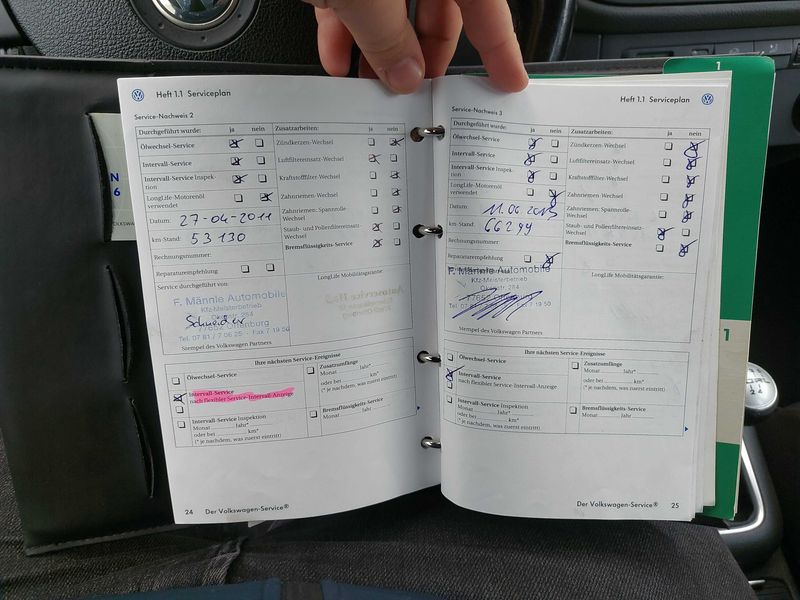 Heft 1.1 Serviceplan
Service-Nachweis 2
Durchgeführt wurde: ja nein
Zusatzarbeiten: ja nein
Ölwechsel-Service
Intervall-Service
Intervall-Service Inspek-
tion
LongLife-Motorenöl
verwendet
Datum: 27-04-2011
km-Stand: 53130
Rechnungsnummer:
Reparaturempfehlung
Service durchgeführt von:
Zündkerzen-Wechsel
Luftfiltereinsatz-Wechsel
Kraftstofffilter-Wechsel
Zahnriemen-Wechsel
Zahnriemen-Spannrolle-
Wechsel
Staub- und Pollenfiltereinsatz-
Wechsel
Bremsflüssigkeits-Service
LongLife Mobilitätsgarantie
F. Männle Automobile
Kfz-Meisterbetrieb
Okenstr. 284
77652 Offenburg
Tel. 07 81 / 7 06 25 - Fax 7 19 50
Schneider
Stempel des Volkswagen Partners
Ihre nächsten Service-Ereignisse
Ölwechsel-Service
Intervall-Service
nach flexibler Service-Intervall-Anzeige
Intervall-Service Inspektion
Monat Jahr*
oder bei km*
(* je nachdem, was zuerst eintritt)
Zusatzumfänge
Monat Jahr*
oder bei km*
(* je nachdem, was zuerst eintritt)
Bremsflüssigkeits-Service
Monat Jahr
24 Der Volkswagen-Service®
Heft 1.1 Serviceplan
Service-Nachweis 3
Durchgeführt wurde: ja nein
Zusatzarbeiten: ja nein
Ölwechsel-Service
Intervall-Service
Intervall-Service Inspek-
tion
LongLife-Motorenöl
verwendet
Datum: 11.06.2013
km-Stand: 66299
Rechnungsnummer:
Reparaturempfehlung
Zündkerzen-Wechsel
Luftfiltereinsatz-Wechsel
Kraftstofffilter-Wechsel
Zahnriemen-Wechsel
Zahnriemen-Spannrolle-
Wechsel
Staub- und Pollenfiltereinsatz-
Wechsel
Bremsflüssigkeits-Service
LongLife Mobilitätsgarantie:
F. Männle Automobile
Kfz-Meisterbetrieb
Okenstr. 284
77652 Offenburg
Tel. 07 81 / 7 06 25 - Fax 7 19 50
Stempel des Volkswagen Partners
Ihre nächsten Service-Ereignisse
Ölwechsel-Service
Intervall-Service
nach flexibler Service-Intervall-Anzeige
Intervall-Service Inspektion
Monat Jahr*
oder bei km*
(* je nachdem, was zuerst eintritt)
Zusatzumfänge
Monat Jahr*
oder bei km*
(* je nachdem, was zuerst eintritt)
Bremsflüssigkeits-Service
Monat Jahr
Der Volkswagen-Service® 25
1
1
N
6